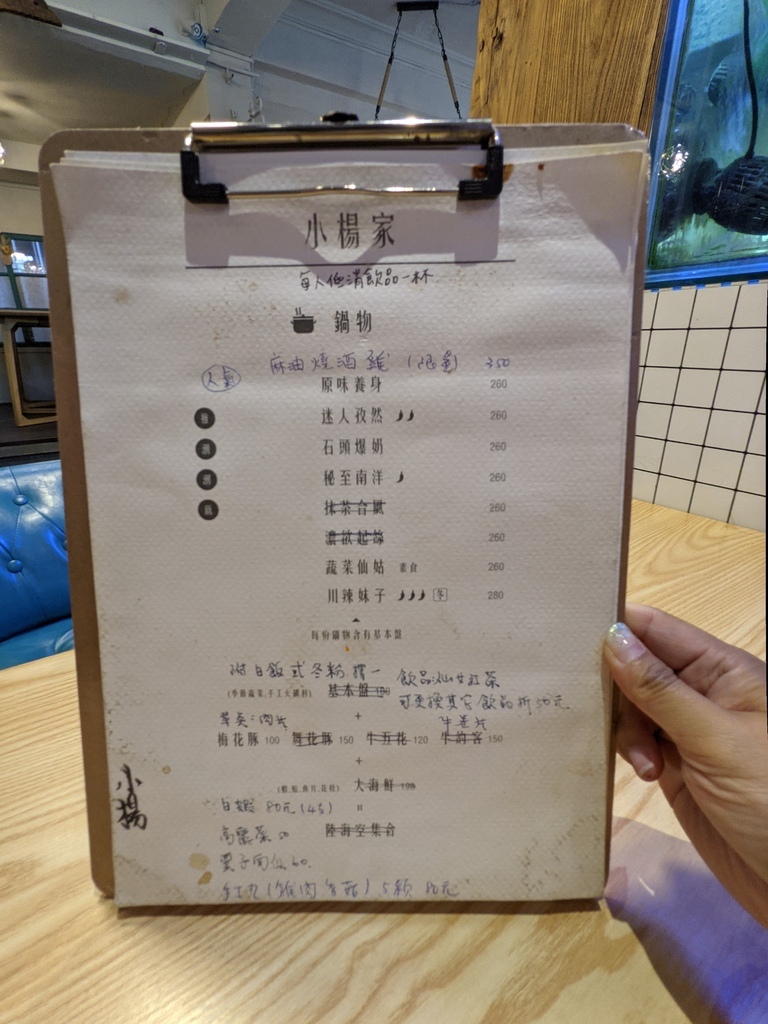 小楊家
每人低消飲品一杯
鍋物
麻油燒酒雞 (限量) 350
人氣 原味養身 260
迷人孜然 260
石頭爆奶 260
秘至南洋 260
抹茶合風 260
濃欲起絲 260
蔬菜仙姑 素食 260
川辣妹子 冬 280
每份鍋物含有基本盤
附白飯或冬粉擇一
飲品以山廿紅茶
(季節蔬菜,手工火鍋料) 基本盤
可更換其它飲品折50元
+
單卖:肉片 牛卷片
梅花豚 100 舞花豚 150 牛五花 120 牛的客 150
+
(蝦,蛤,魚片,花枝) 大海鮮 190
白蝦 80元(4隻)
=
高麗菜 50
陸海空集合
栗子南瓜 60.
手工丸(雞肉香菇) 5顆 80元
小楊